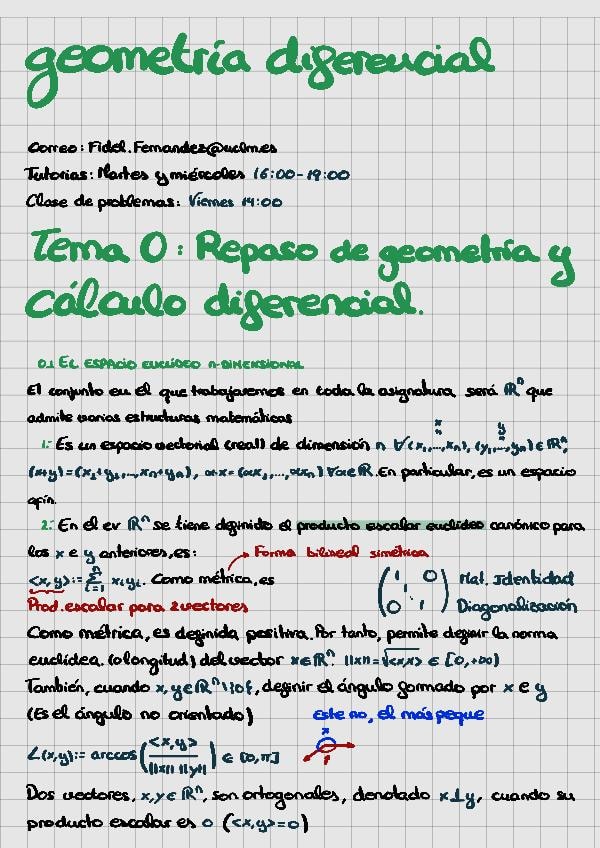 geometría diferencial
Correo: Fidel.Fernandez@uclm.es
Tutorias: Martes y miércoles 16:00-19:00
Clase de problemas: Viernes 14:00
Tema 0: Repaso de geometría y
cálculo diferencial.
0.1 EL ESPACIO EUCLÍDEO n-DIMENSIONAL
El conjunto en el que trabajaremos en toda la asignatura será ℝⁿ que
admite varias estructuras matemáticas
x y
1: Es un espacio vectorial (real) de dimensión n ∀(x₁,...,xₙ), (y₁,...,yₙ) ∈ ℝⁿ,
(x+y)=(x₁+y₁,...,xₙ+yₙ), α·x=(αx₁,...,αxₙ) ∀α∈ℝ. En particular, es un espacio
afín.
2: En el ev ℝⁿ se tiene definido el producto escalar euclídeo canónico para
los x e y anteriores, es: Forma bilineal simétrica
<x,y>:= Σⁿᵢ₌₁ xᵢyᵢ. Como métrica, es (1 0 1 0 1) Mat. Identidad
Prod. escalar para 2 vectores Diagonalización
Como métrica, es definida positiva. Por tanto, permite definir la norma
euclídea (o longitud) del vector x∈ℝⁿ: ||x||=√<x,x> ∈ [0,+∞)
También, cuando x,y∈ℝⁿ\{0}, definir el ángulo formado por x e y
(Es el ángulo no orientado) Este no, el más peque
∠(x,y):= arccos(<x,y>/||x|| ||y||) ∈ [0,π]
Dos vectores, x,y∈ℝⁿ, son ortogonales, denotado x⊥y, cuando su
producto escalar es 0 (<x,y>=0)